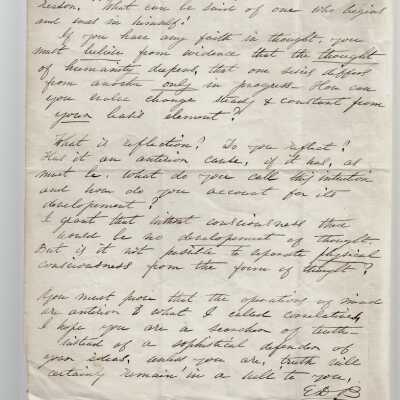 reason. What can be said of one who begins
and ends in himself?
If you have any faith in thought, you
must believe from evidence that the thought
of humanity deepens, that one series differs
from another only in progress. How can
you evolve change steady & constant from
your basis element?
What is reflection? Do you reflect?
Has it an anterior cause, if it has, as
must be. What do you call this intuition
and how do you account for its
development?
I grant that without consciousness there
would be no development of thought.
But is it not posible to seperate physical
consciousness from the form of thought?
You must prove that the operations of mind
are anterior to what I called correlatives,
I hope you are a searcher of truth
instead of a sophistical defender of
your ideas, unless you are, truth will
certainly remain in a well to you,
E D B